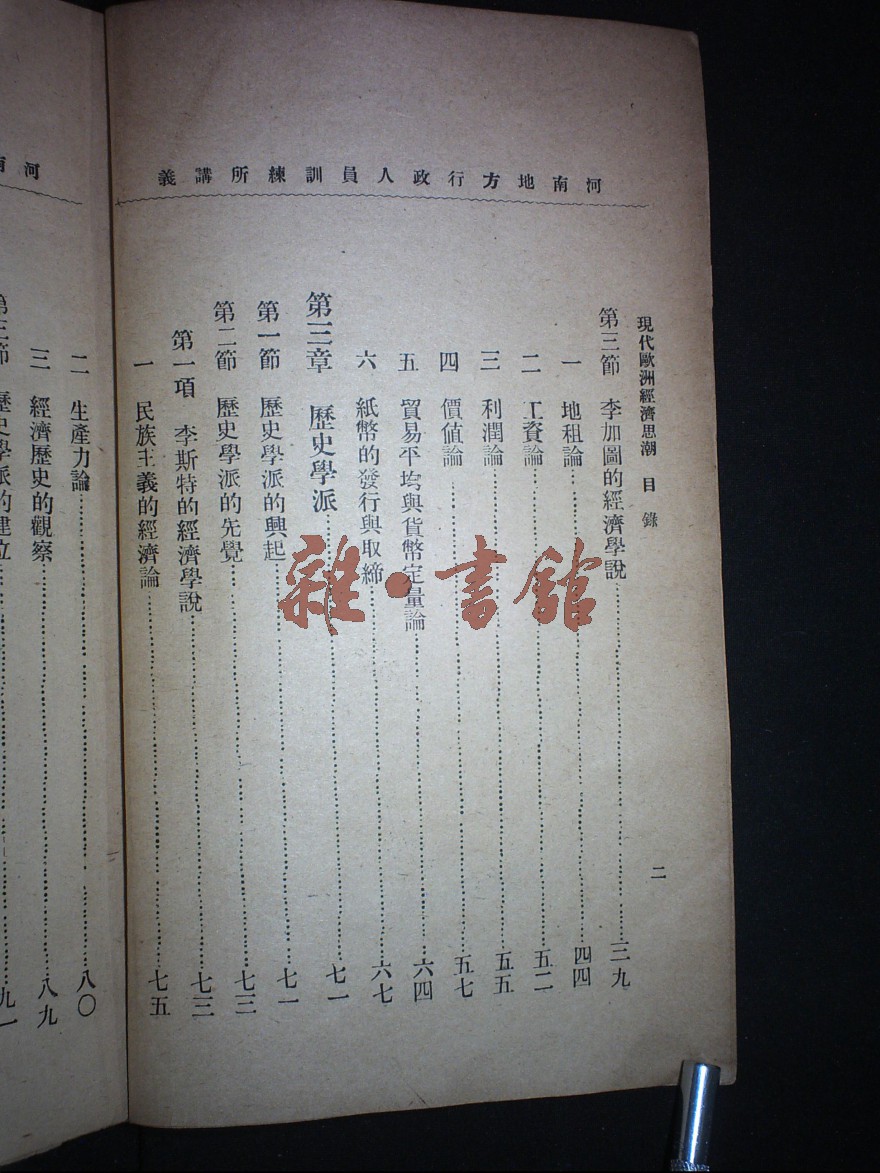 河南地方行政人員訓練所講義
現代歐洲經濟思潮 目錄
二
第三節 李加圖的經濟學說……三九
一 地租論……四四
二 工資論……五二
三 利潤論……五五
四 價值論……五七
五 貿易平均與貨幣定量論……六四
六 紙幣的發行與取締……六七
第三章 歷史學派……七一
第一節 歷史學派的興起……七一
第二節 歷史學派的先覺……七三
第一項 李斯特的經濟學說……七三
一 民族主義的經濟論……七五
河
二 生產力論……八〇
三 經濟歷史的觀察……八九
節 歷史學派的建立……九一
雜·書館